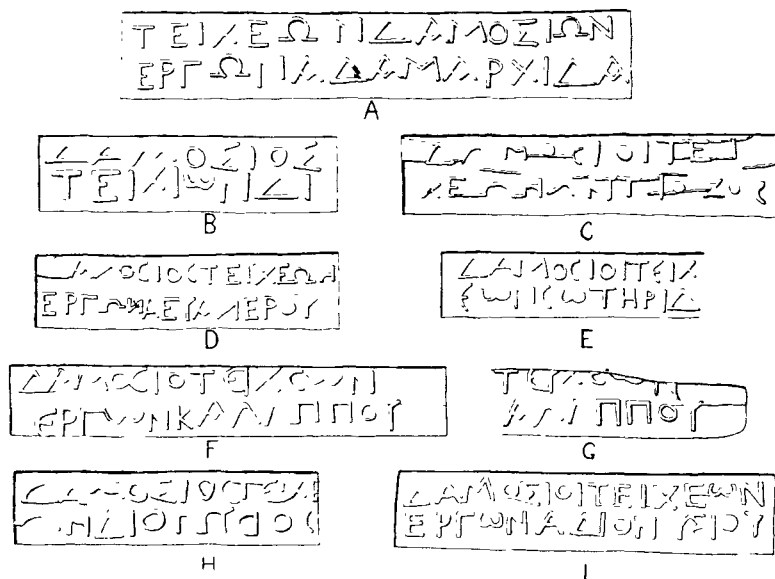 ΤΕΙΧΕΩΝΔΑΜΟΣΙΩΝ
ΕΡΓΩΝΑΔΑΜΑΡΧΙΔΑ
A
ΔΑΜΟΣΙΟΣ
ΤΕΙΧΙωΝΔΙ
B
ΔΑΜΟϹΙΟΙΤΕΙ
C
ΔΑΜΟϹΙΟϹΤΕΙΧΕΩΝ
D
ΔΑΜΟϹΙΟΙΤΕΙΧ
ΕωΝϹωΤΗΡΙΔ
E
ΔΑΜΟϹΙΟΤΕΙΧΕωΝ
ΕΡΓωΝΚΑΛΛΙΠΠΟΥ
F
ΤΕΙΧΕωΝ
ΑΛΛΙΠΠΟΥ
G
ΔΑΜΟΣΙΟΣΤΕΙΧΕ
H
ΔΑΜΟΣΙΟΙΤΕΙΧΕωΝ
ΕΡΓωΝΑΔΙΟΝΥΣΙΟΥ
I